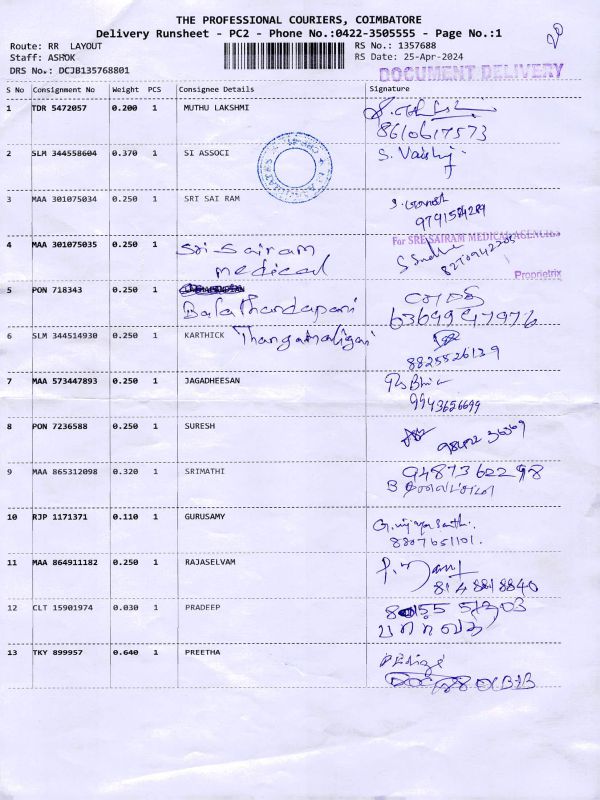 THE PROFESSIONAL COURIERS, COIMBATORE
Delivery Runsheet - PC2 - Phone No.:0422-3505555 - Page No.:1
Route: RR LAYOUT RS No.: 1357688
Staff: ASHOK RS Date: 25-Apr-2024
DRS No.: DCJB135768801 DOCUMENT DELIVERY
S No Consignment No Weight PCS Consignee Details Signature
1 TDR 5472057 0.200 1 MUTHU LAKSHMI
8610617573
2 SLM 344558604 0.370 1 SI ASSOCI S. Vaishy
3 MAA 301075034 0.250 1 SRI SAI RAM S. Ganesh
9791584289
For SRE SAIRAM MEDICAL AGENCIES
4 MAA 301075035 0.250 1 Sri-Sairam S Sudha
medical 8270942285
Proprietrix
5 PON 718343 0.250 1
Balathandapani 6369947976
6 SLM 344514930 0.250 1 KARTHICK Thangamaligai
8825526129
7 MAA 573447893 0.250 1 JAGADHEESAN
9943656699
8 PON 7236588 0.250 1 SURESH
9 MAA 865312098 0.320 1 SRIMATHI 9487362298
10 RJP 1171371 0.110 1 GURUSAMY
8807651101.
11 MAA 864911182 0.250 1 RAJASELVAM
8148818840
12 CLT 15901974 0.030 1 PRADEEP
13 TKY 899957 0.640 1 PREETHA